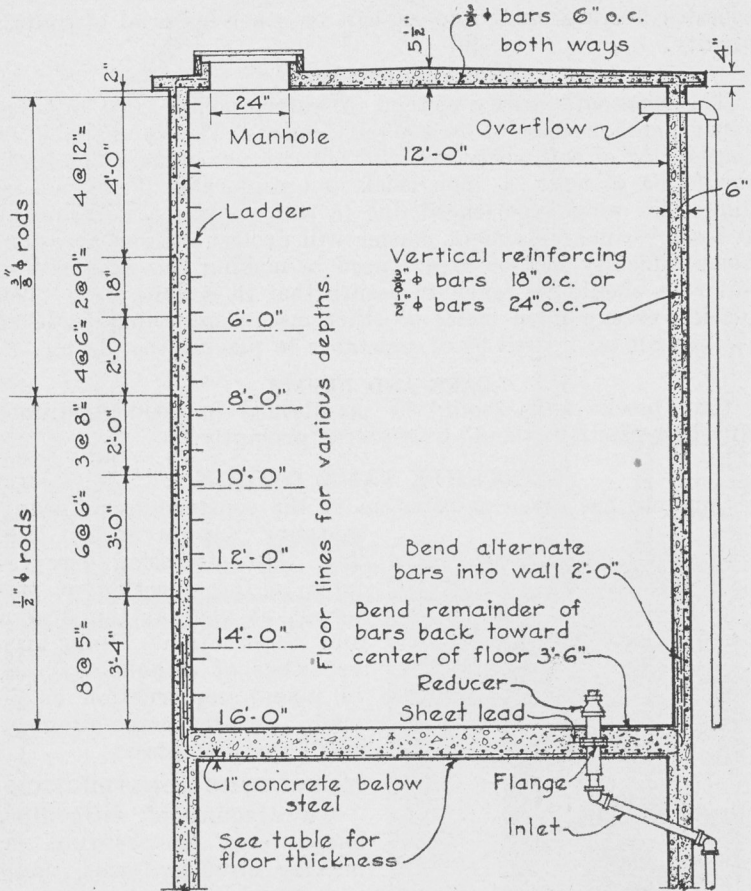 3/8" ϕ bars 6" o.c.
both ways
5 1/2"
4"
2"
24"
Manhole
Overflow
12'-0"
6"
Ladder
Vertical reinforcing
3/8" ϕ bars 18" o.c. or
1/2" ϕ bars 24" o.c.
3/8" ϕ rods
4@12"=
4'-0"
2@9"=
18"
4@6"=
2'-0
1/2" ϕ rods
3@8"=
2'-0"
6@6"=
3'-0"
8@5"=
3'-4"
6'-0"
8'-0"
10'-0"
12'-0"
14'-0"
16'-0"
Floor lines for various depths.
Bend alternate
bars into wall 2'-0"
Bend remainder of
bars back toward
center of floor 3'-6"
Reducer
Sheet lead
1" concrete below
steel
Flange
Inlet
See table for
floor thickness